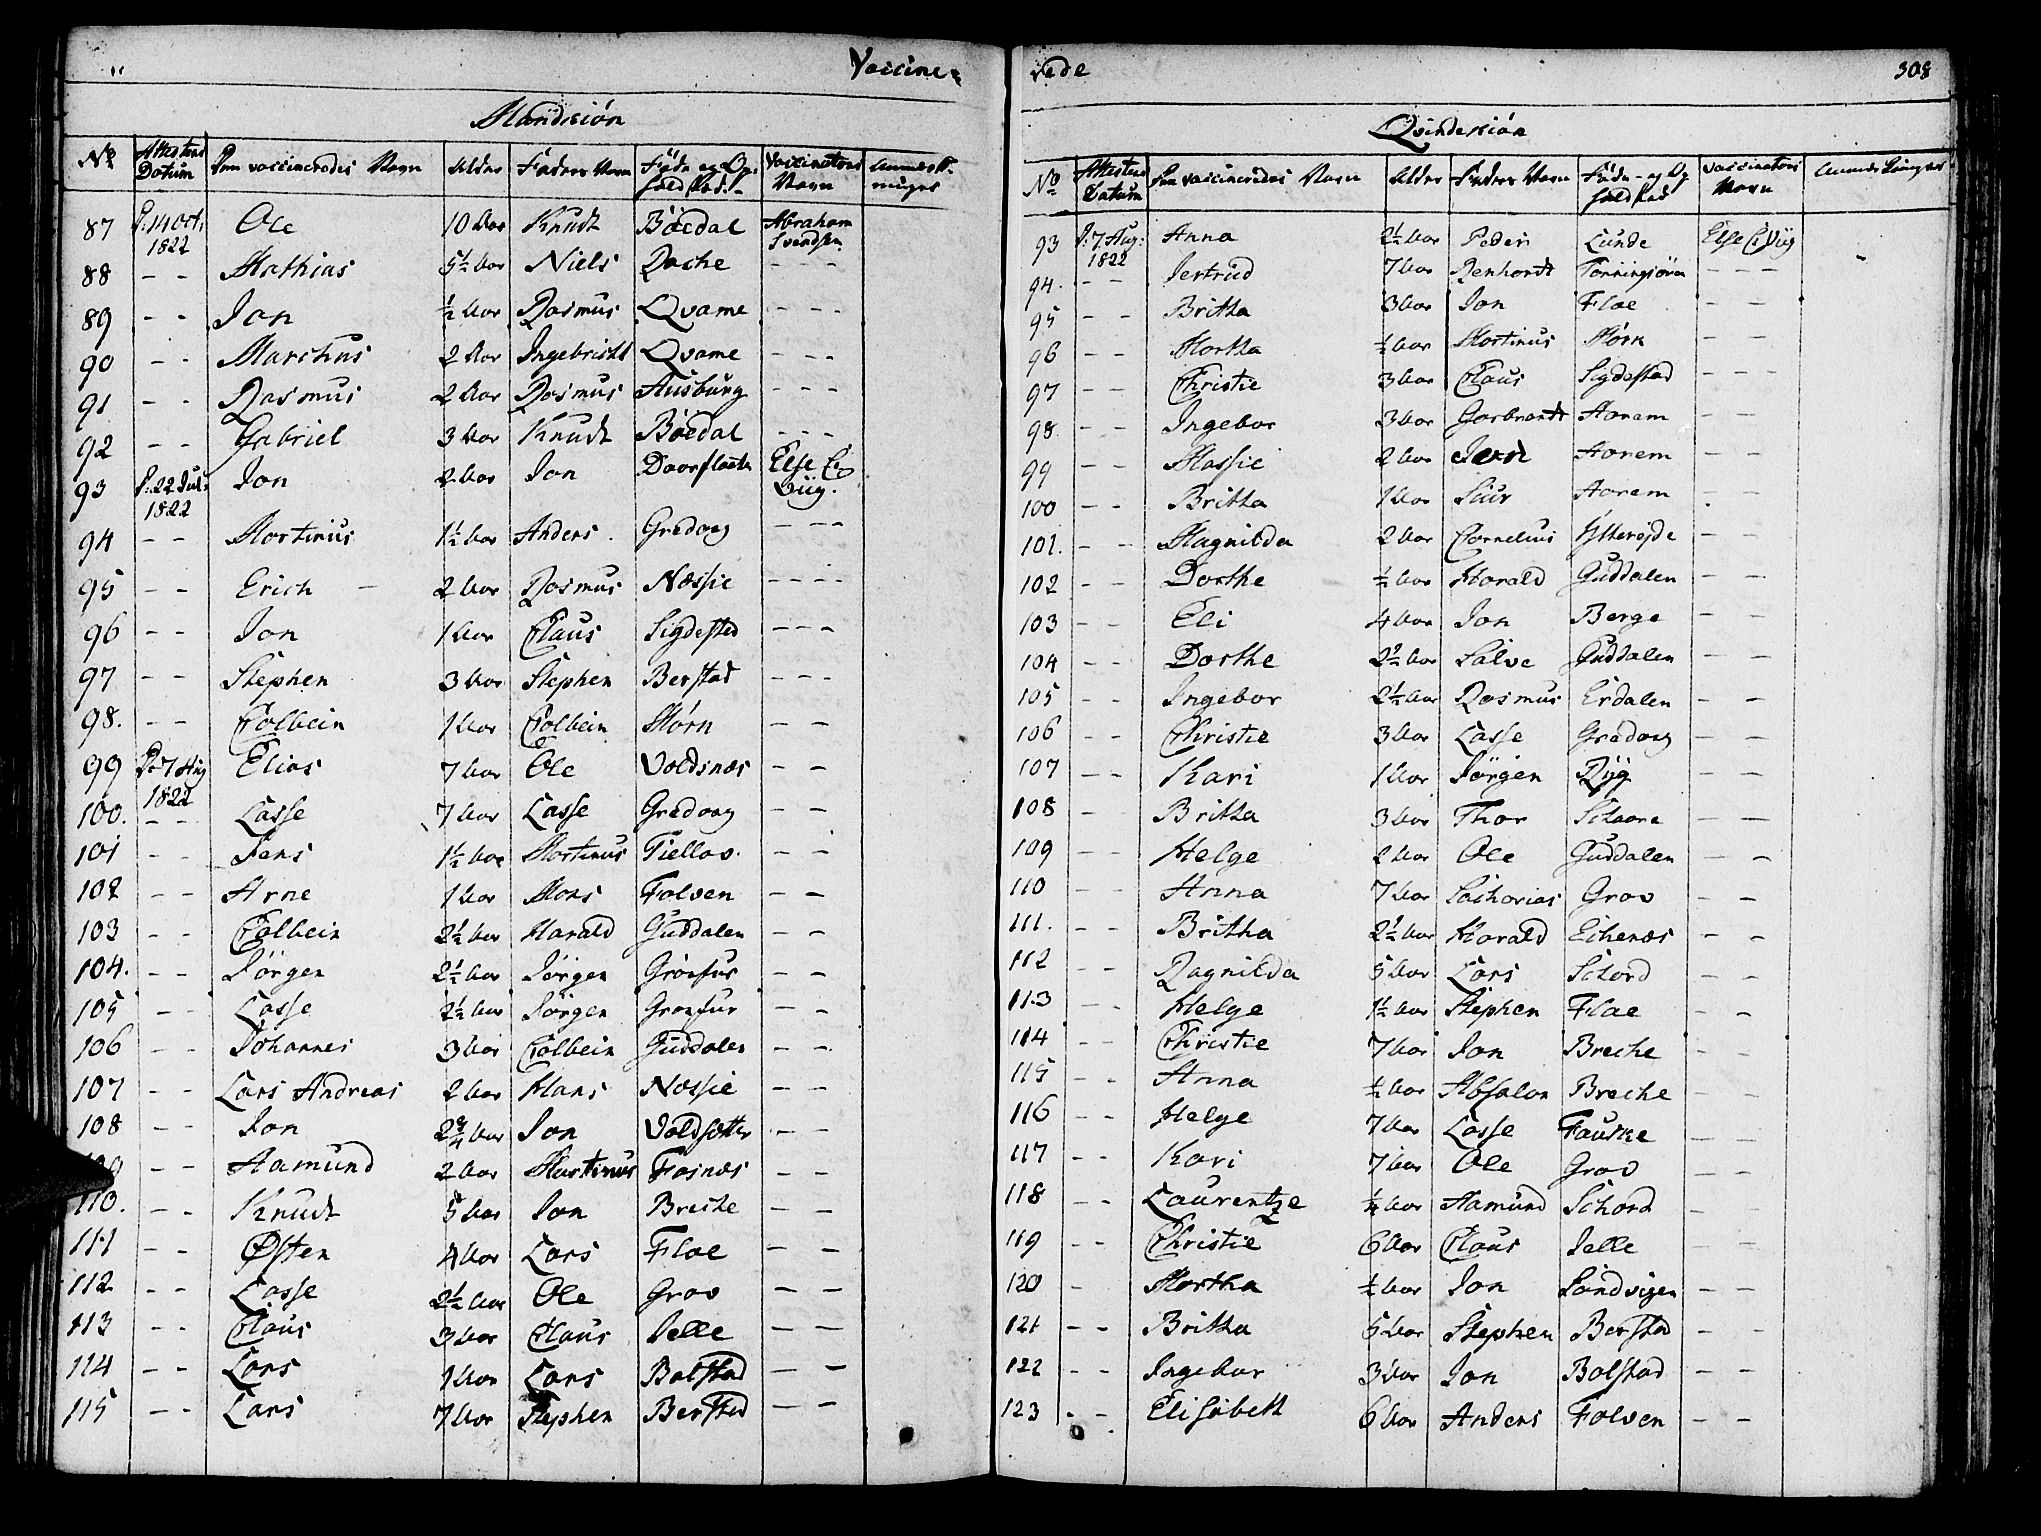 Vaccine-
Mandkiön
No Attestens Datum Den vaccineredes Navn Alder Faders Navn Föde- og Op- hold Sted. Vaccinateurs Navn Anmærk- ninger
87 D: 14 Oct: 1822 Ole 10 Aar Knudt Böedal Abraham Svendsen
88 - - Mathias 5½ Aar Niels Qvame - -
89 - - Jon ½ Aar Rasmus Qvame - - -
90 - - Marchus 2 Aar Ingebricht Qvame - - -
91 - - Rasmus 2 Aar Rasmus Ausburg - - -
92 - - Gabriel 3 Aar Knudt Böedal - - -
93 D: 22 Jul: 1822 Jon 2 Aar Jon Else C: Viig.
94 - - Mortinus 1½ Aar Anders Gredong - - -
95 - - Erich 2 Aar Rasmus Næssie - - - -
96 - - Jon 1 Aar Claus Sigdestad - - -
97 - - Stephen 3 Aar Stephen Berstad - - -
98. - - Colbein 1 Aar Colbein Mörn - -
99 D: 7 Aug 1822 Elias 7 Aar Ole Voldsnæs - -
100. - - Lasse 7 Aar Lasse Gredong - -
101 - - Jens 1½ Aar Mortinus Tiellav. - -
102 - - Arne 1 Aar Mons Folven - -
103 - - Colbein 2½ Aar Harald Guddalen - -
104. - - Jörgen 2½ Aar Jörgen Grönfur - -
105 - - Lasse 2½ Aar Jörgen Grönfur - -
106 - - Johannes 3 Aar Colbein Guddalen - -
107 - - Lars Andreas 2 Aar Hans Næssie - -
108 - - Jon 2¾ Aar Jon Voldsætter - -
109 - - Aamund 2 Aar Martinus Fosnæs - -
110. - - Knudt 5 Aar Jon Breche - -
111 - - Østen 4 Aar Lars Floe - -
112 - - Lasse 2½ Aar Ole Grov - -
113 - - Claus 3 Aar Claus Jelle - -
114 - - Lars 1 Aar Lars Bolstad - -
115 - - Lars 7 Aar Stephen Berstad - -
rede 308
Qvindekiön
No Attestens Datum Den vaccineredes Navn Alder Faders Navn Föde- og Op hold Sted Vaccinateurs Navn Anmærkninger
93 D: 7 Aug: 1822 Anna 2½ Aar Peder Lunde Else C: Viig
94. - - Jertrud 7 Aar Renhardt - - -
95 - - Britha 3 Aar Jon Floe - -
96 - - Martha ½ Aar Mortinus Mörn - -
97 - - Christie 3 Aar Claus Sigdestad - - -
98. - - Ingebor 3 Aar Garbrandt Aarem - -
99 - - Massie 2 Aar Iver Aarem - -
100 - - Britha 1 Aar Siur Aarem - -
101. - - Magnilda 2 Aar Cornelius Ytterøjde - -
102 - - Dorthe ½ Aar Harald Guddalen - -
103 - - Eli 4 Aar Jon Berge - -
104 - - Dorthe 2½ Aar Salve Guddalen - -
105 - - Ingebor 2½ Aar Rasmus Erdalen - -
106 - - Christie 3 Aar Lasse Gredong - -
107 - - Kari 1 Aar Jörgen Ryg - -
108 - Britha 3 Aar Thor Schaare - -
109 - - Helge 2 Aar Ole Guddalen - -
110 - - Anna 7 Aar Sacharias Grov - -
111. - - Britha 2½ Aar Harald Eichenæs - -
112 - - Ragnilda 5 Aar Lars Schord - -
113 - - Helge 1½ Aar Stephen Floe - -
114 - - Christie 7 Aar Jon Breche - -
115 - - Anna ½ Aar Absalon Breche - -
116 - - Helge 7 Aar Lasse Fauske - -
117 - - Kari 7 Aar Ole Grov - -
118 - - Laurentze ¼ Aar Aamund Schord - -
119 - - Christie 6 Aar Claus Jelle - -
120 - Martha ½ Aar Jon Sandvigen - -
121 - - Britha 5 Aar Stephen Berstad - -
122 - - Ingebor 3 Aar Jon Bolstad - -
123 - - Elisabeth 6 Aar Anders Folven - -